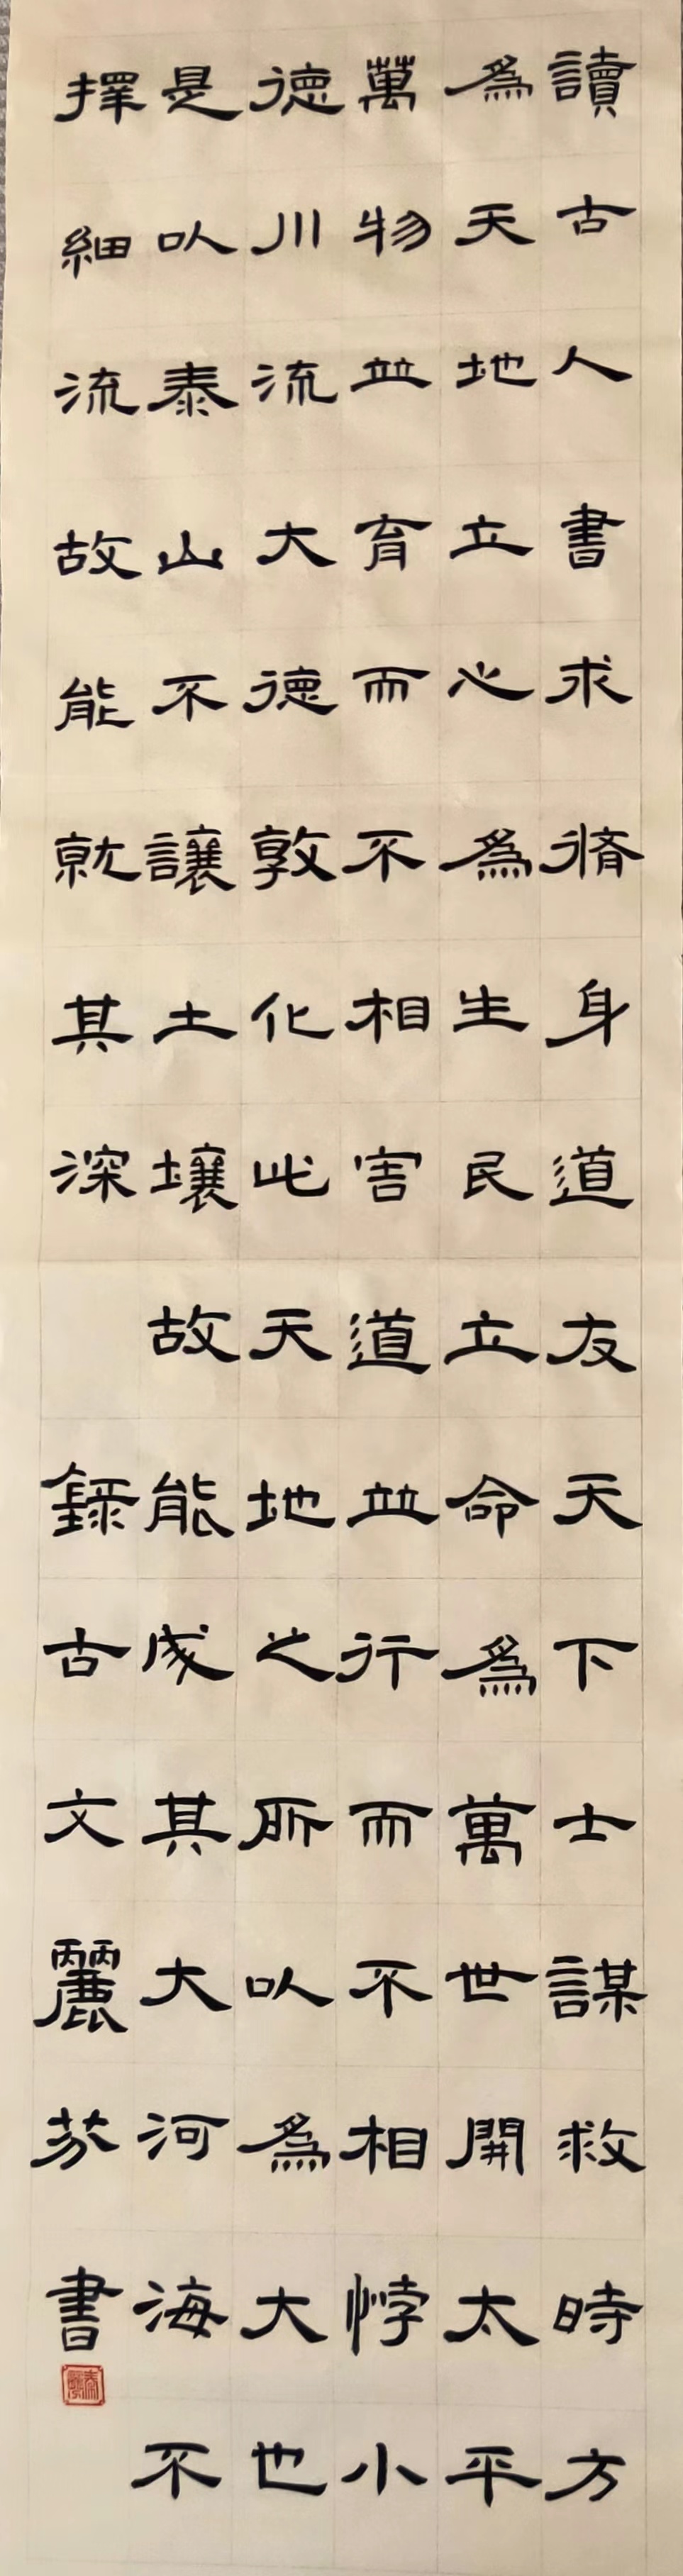 讀古人書求脩身道友天下士謀救時方
爲天地立心爲生民立命爲萬世開太平
萬物並育而不相害道並行而不相悖小
德川流大德敦化此天地之所以爲大也
是以泰山不讓土壤故能成其大河海不
擇細流故能就其深 錄古文麗芬書